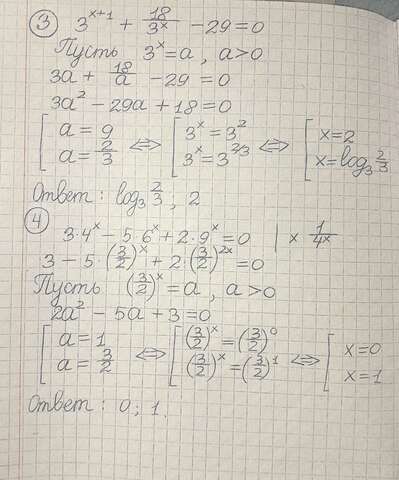 ③ 3^{x+1} + \frac{18}{3^x} - 29 = 0
Пусть 3^x = a, a > 0
3a + \frac{18}{a} - 29 = 0
3a^2 - 29a + 18 = 0
[ a = 9 ⇔ [ 3^x = 3^2 ⇔ [ x = 2
a = \frac{2}{3} 3^x = 3^{2/3} x = log_3 \frac{2}{3}
Ответ: log_3 \frac{2}{3}; 2
④ 3·4^x - 5·6^x + 2·9^x = 0 | × \frac{1}{4^x}
3 - 5·(\frac{3}{2})^x + 2·(\frac{3}{2})^{2x} = 0
Пусть (\frac{3}{2})^x = a, a > 0
2a^2 - 5a + 3 = 0
[ a = 1 ⇔ [ (\frac{3}{2})^x = (\frac{3}{2})^0 ⇔ [ x = 0
a = \frac{3}{2} (\frac{3}{2})^x = (\frac{3}{2})^1 x = 1
Ответ: 0; 1.